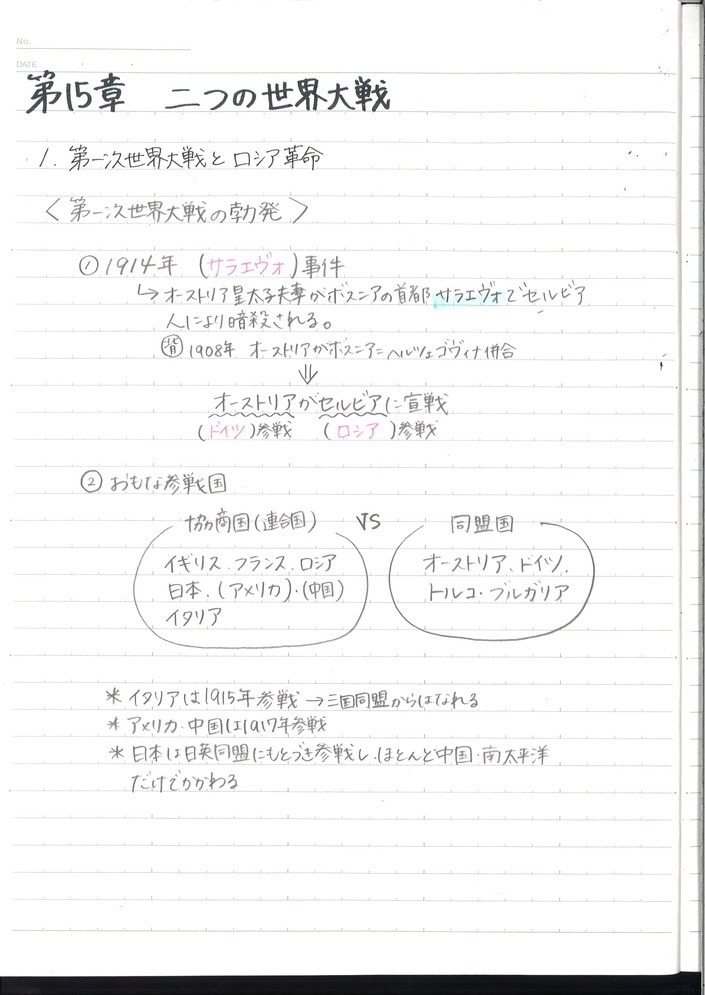 No.
DATE
第15章 二つの世界大戦
1. 第一次世界大戦とロシア革命
〈第一次世界大戦の勃発〉
① 1914年 (サラエヴォ)事件
↳ オーストリア皇太子夫妻がボスニアの首都サラエヴォでセルビア
人により暗殺される。
㊟背 1908年 オーストリアがボスニア=ヘルツェゴヴィナ併合
⇓
オーストリアがセルビアに宣戦
(ドイツ)参戦 (ロシア)参戦
② おもな参戦国
協商国(連合国) VS 同盟国
イギリス.フランス.ロシア オーストリア、ドイツ、
日本.(アメリカ)・(中国) トルコ・ブルガリア
イタリア
* イタリアは1915年参戦 → 三国同盟からはなれる
* アメリカ・中国は1917年参戦
* 日本は日英同盟にもとづき参戦し、ほとんど中国・南太平洋
だけでかかわる